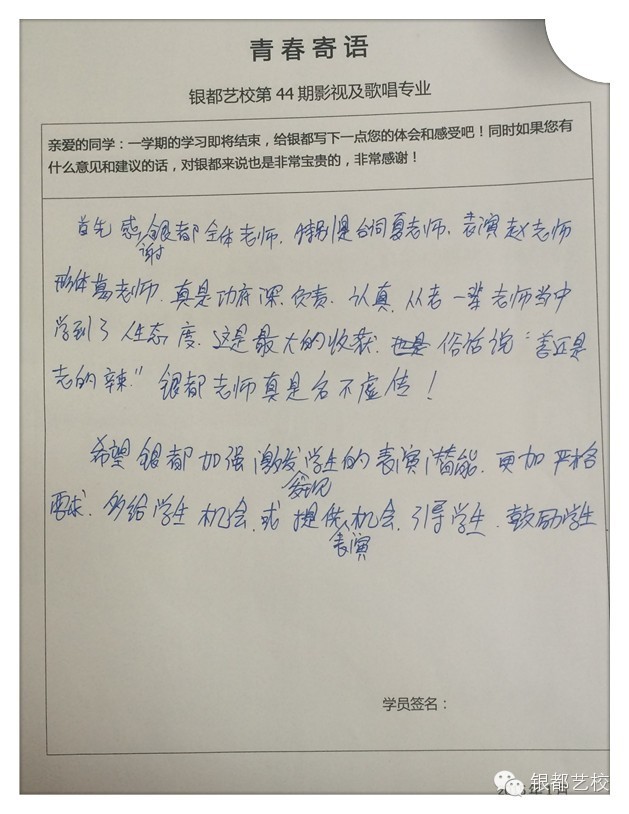 青春寄语
银都艺校第 44 期影视及歌唱专业
亲爱的同学：一学期的学习即将结束，给银都写下一点您的体会和感受吧！同时如果您有
什么意见和建议的话，对银都来说也是非常宝贵的，非常感谢！
首先感谢银都全体老师，特别是台词夏老师、表演赵老师
形体葛老师，真是功底深，负责，认真，从老一辈老师当中
学到了人生态度，这是最大的收获，俗话说“姜还是
老的辣”银都老师真是名不虚传！
希望银都加强激发发现学生的表演潜能，更加严格
要求，多给学生机会，或提供表演机会，引导学生，鼓励学生
学员签名：
银都艺校